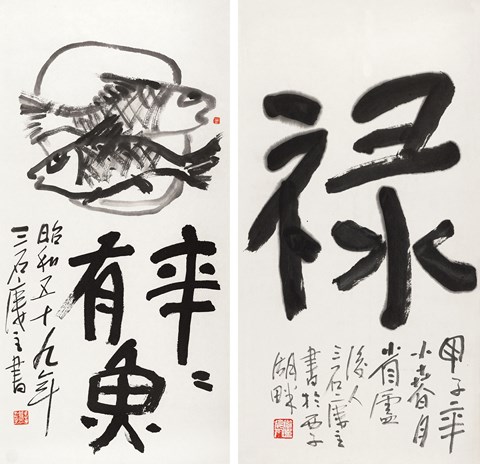 年〻
有魚
昭和五十九年
三石廔主書
禄
甲子年
小春月
省廬
後人
三石廔主
書於西子
湖畔